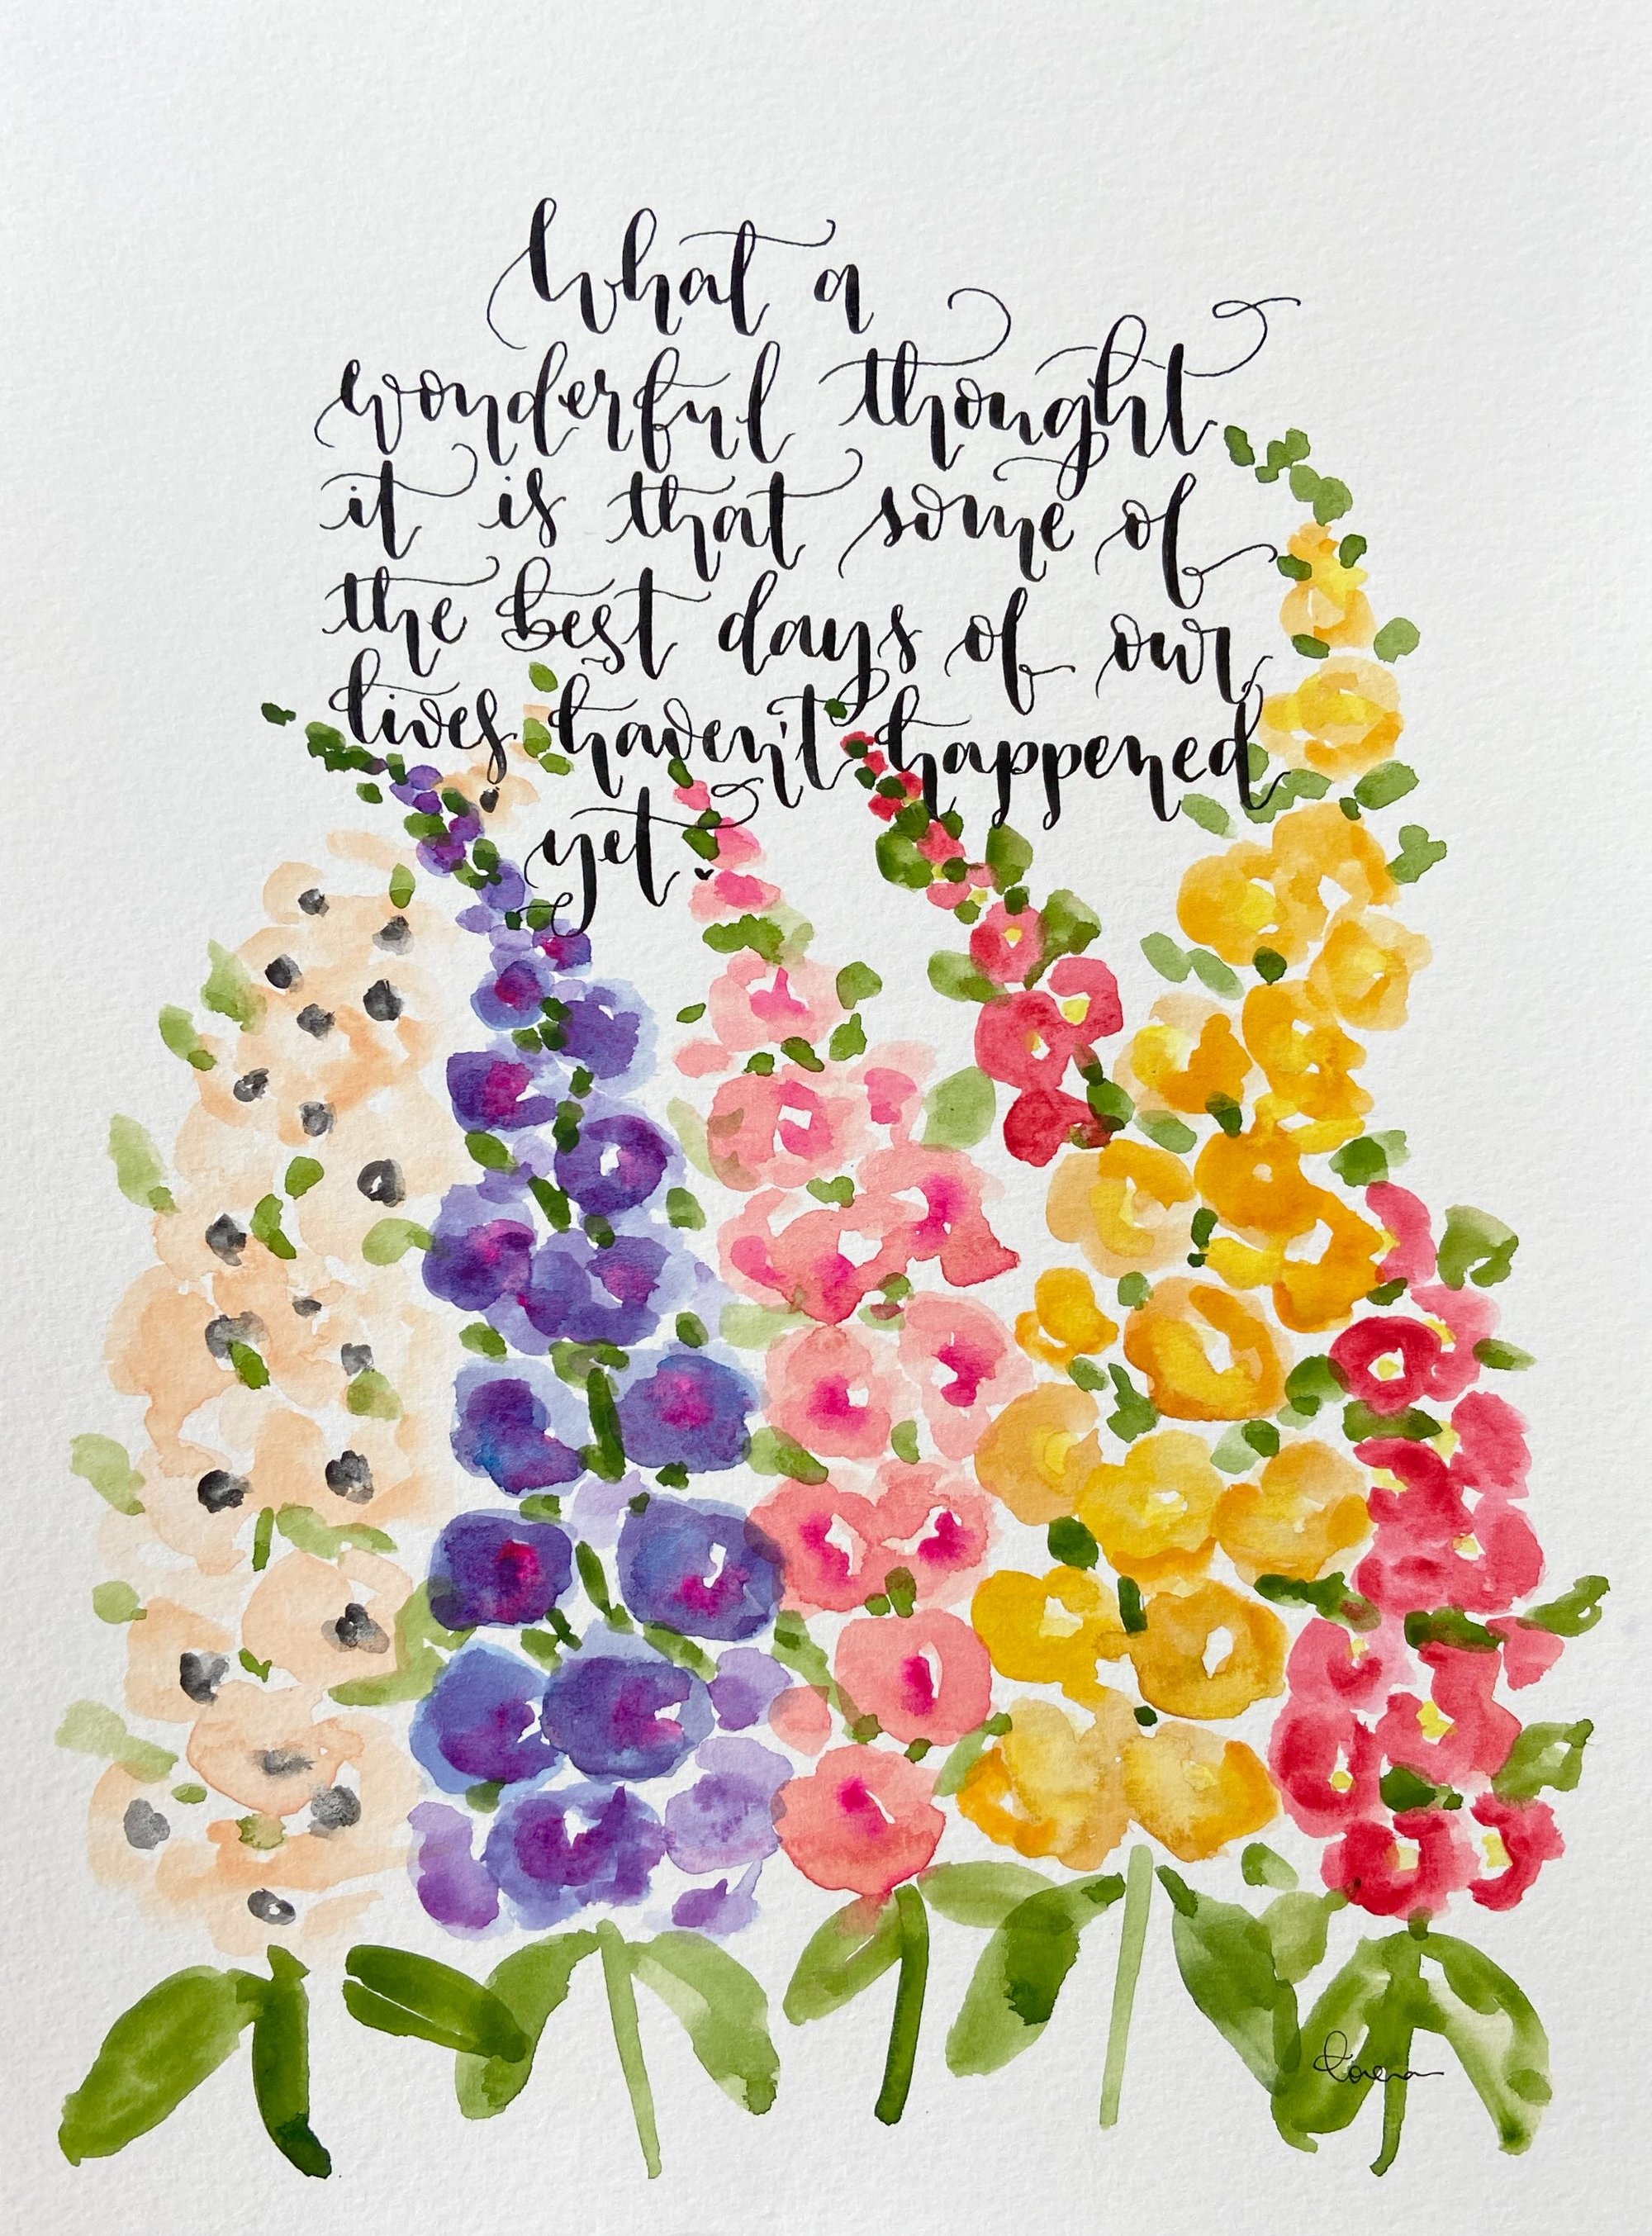 What a
wonderful thought
it is that some of
the best days of our
lives haven't happened
yet.